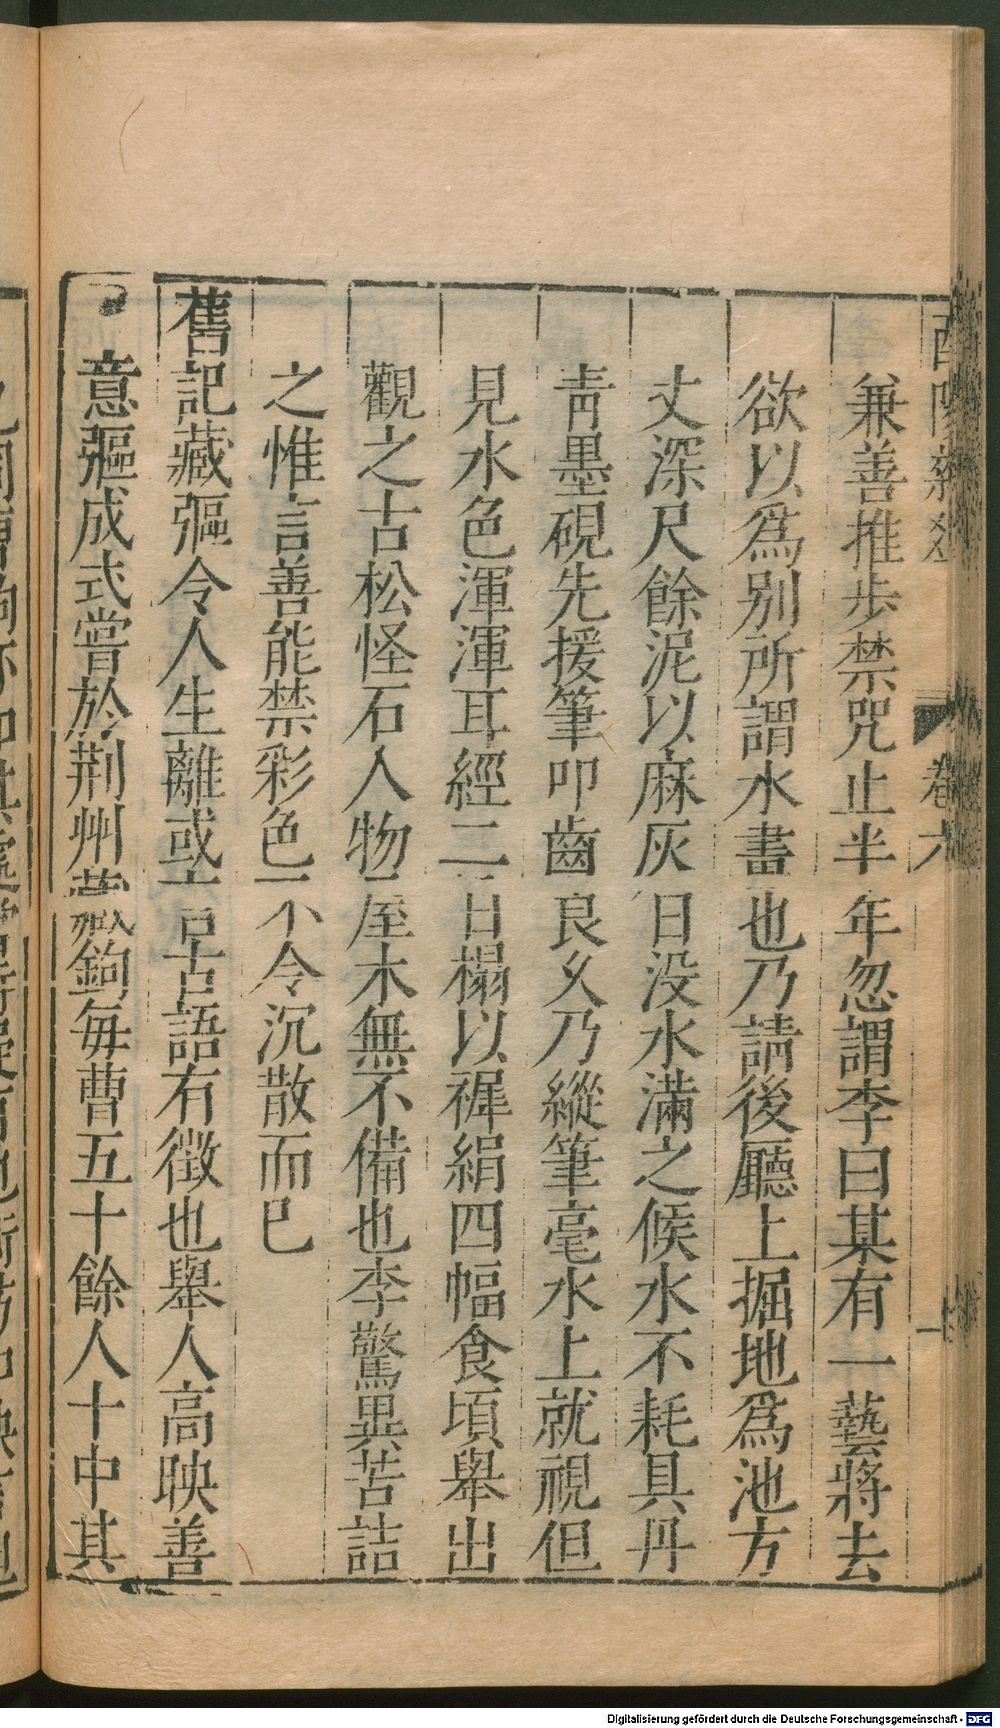 兼善推步禁咒止半年忽謂李曰某有一藝將去
欲以爲别所謂水畫也乃請後廳上掘地爲池方
丈深尺餘泥以麻灰日没水滿之候水不耗具丹
靑墨硯先援筆叩齒良乆乃縱筆毫水上就視但
見水色渾渾耳經二日榻以稺絹四幅食頃舉出
觀之古松怪石人物屋木無不備也李驚異苦詰
之惟言善能禁彩色不令沉散而已
舊記藏彄令人生離或言古語有徴也舉人高映善
意彄成式嘗於荆州藏鉤每曹五十餘人十中其
卷六
Digitalisierung gefördert durch die Deutsche Forschungsgemeinschaft - DFG